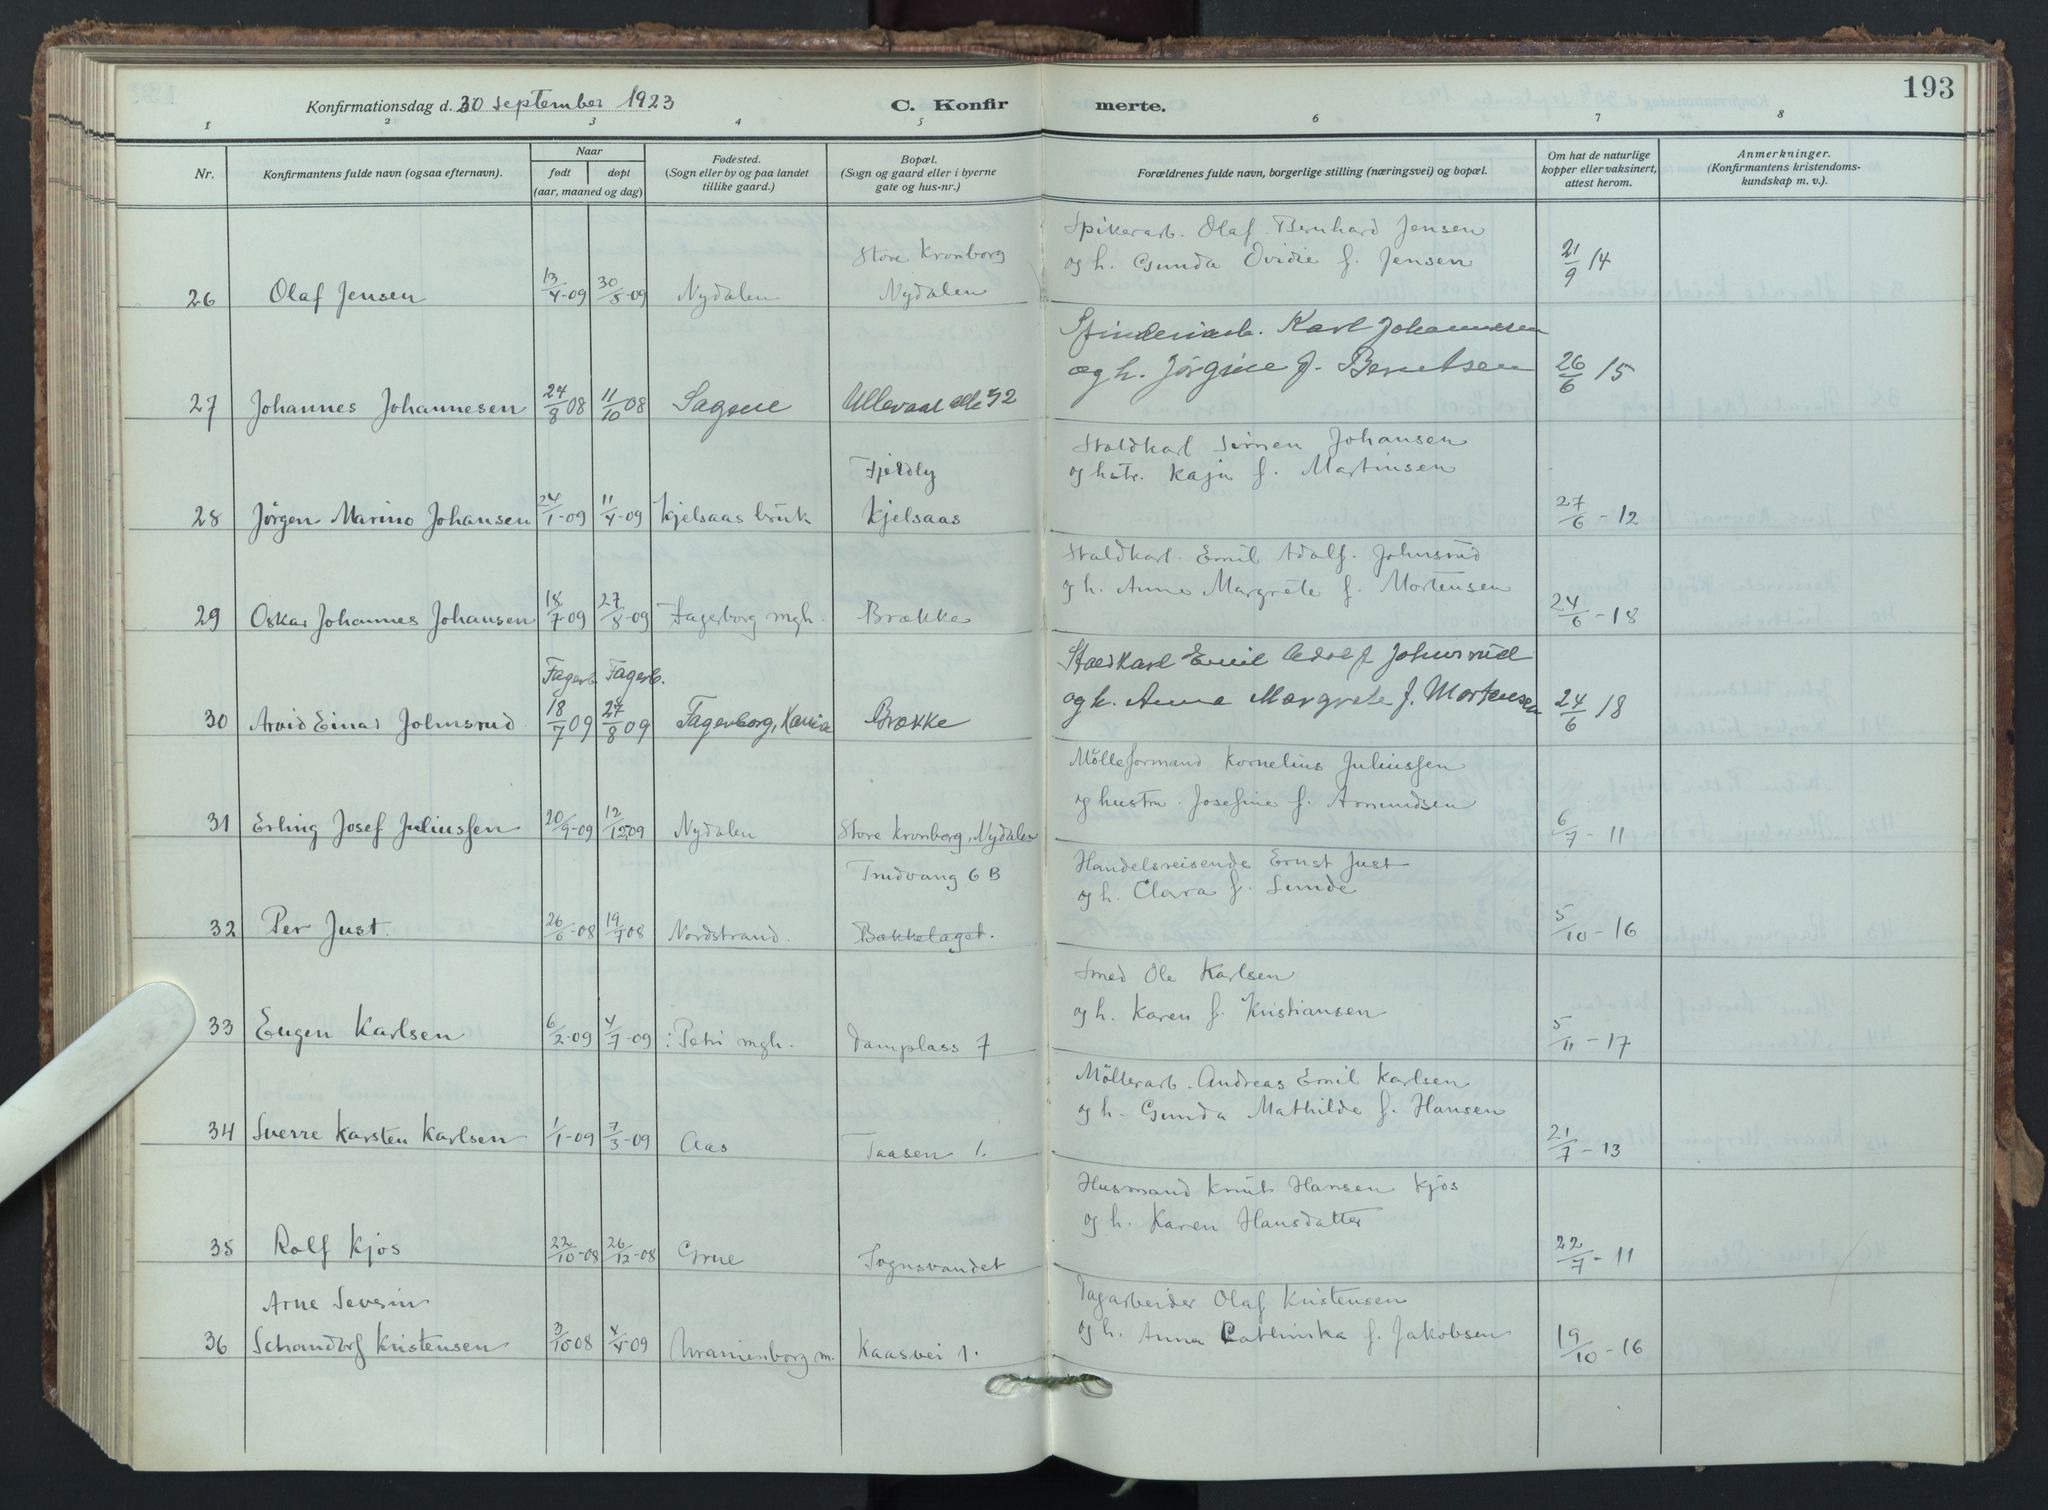 193
Konfirmationsdag d. 30 september 1923 C. Konfir merte.
1 2 3 4 5 6 7 8
Nr.
Konfirmantens fulde navn (ogsaa efternavn).
Naar
født døpt
(aar, maaned og dag)
Fødested.
(Sogn eller by og paa landet
tillike gaard.)
Bopæl.
(Sogn og gaard eller i byerne
gate og hus-nr.)
Forældrenes fulde navn, borgerlige stilling (næringsvei) og bopæl.
Om hat de naturlige
kopper eller vaksinert,
attest herom.
Anmerkninger.
(Konfirmantens kristendoms-
kundskap m. v.).
Store Kronborg Spikerarb. Olaf Bernhard Jensen
og h. Gunda Ovidie f. Jensen
26 Olaf Jensen 13/4-09 30/5-09 Nydalen Nydalen 21/9 14
Spinderiarb. Karl Johannesen
og h. Jørgine f. Berntsen
27 Johannes Johannesen 24/8 08 11/10 08 Sagene Ullevaal alle 52 26/6 15
Staldkarl Simen Johansen
Fjeldly og hstr. Kaja f. Martinsen
28 Jørgen Marino Johansen 24/1-09 11/4-09 Kjelsaas bruk Kjelsaas 27/6-12
Staldkarl. Emil Adolf. Johnsrud
og h. Anna Margrete f. Mortensen
29 Oskar Johannes Johansen 18/7-09 27/8-09 Fagerborg mgh. Brække 24/6-18
Fagerb. Fagerb. Staldkarl Emil Adolf Johnsrud
og h. Anna Margrete f. Mortensen
30 Arvid Einar Johnsrud 18/7 09 27/8 09 Fagerborg, Brække 24/6 18
Mølleformand Kornelius Juliussen
og hustru. Josefine f. Amundsen
31 Erling Josef Juliussen 20/9-09 12/12 09 Nydalen Store Kronborg, Nydalen 6/7-11
Trudvang 6 B Handelsreisende Ernst Just
og h. Clara f. Lunde
32 Per Just 26/6-08 19/7 08 Nordstrand. Bækkelaget. 5/10-16
Smed Ole Karlsen
og h. Karen f. Kristiansen
33 Eugen Karlsen 6/2-09 4/7-09 Petri mgh. Damplass 7 5/11-17
Møllerarb. Andreas Emil Karlsen
og h. Gunda Mathilde f. Hansen
34 Sverre Karsten Karlsen 1/1-09 7/3-09 Aas Taasen 1. 21/7-13
Husmand Knut Hansen Kjos
og h. Karen Hansdatter
35 Rolf Kjos 22/10-08 26/12-08 Grue Sognsvandet 22/7-11
Arne Severin Dagarbeider Olaf Kristensen
og h. Anna Cathinka f. Jakobsen
36 Schandorf Kristensen 3/10-08 4/4 09 Uranienborg m. Kaasvei 1. 19/10-16